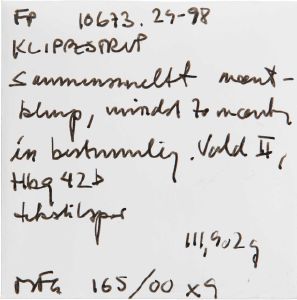 FP 10673.29-98
KLIPPESTRUP
Sammensmeltt mønt-
klump, mindst 70 mønter
in bestemmelig. Vald II,
Hbg 42b
tekstilspor
111,902g
MFG 165/00 x9